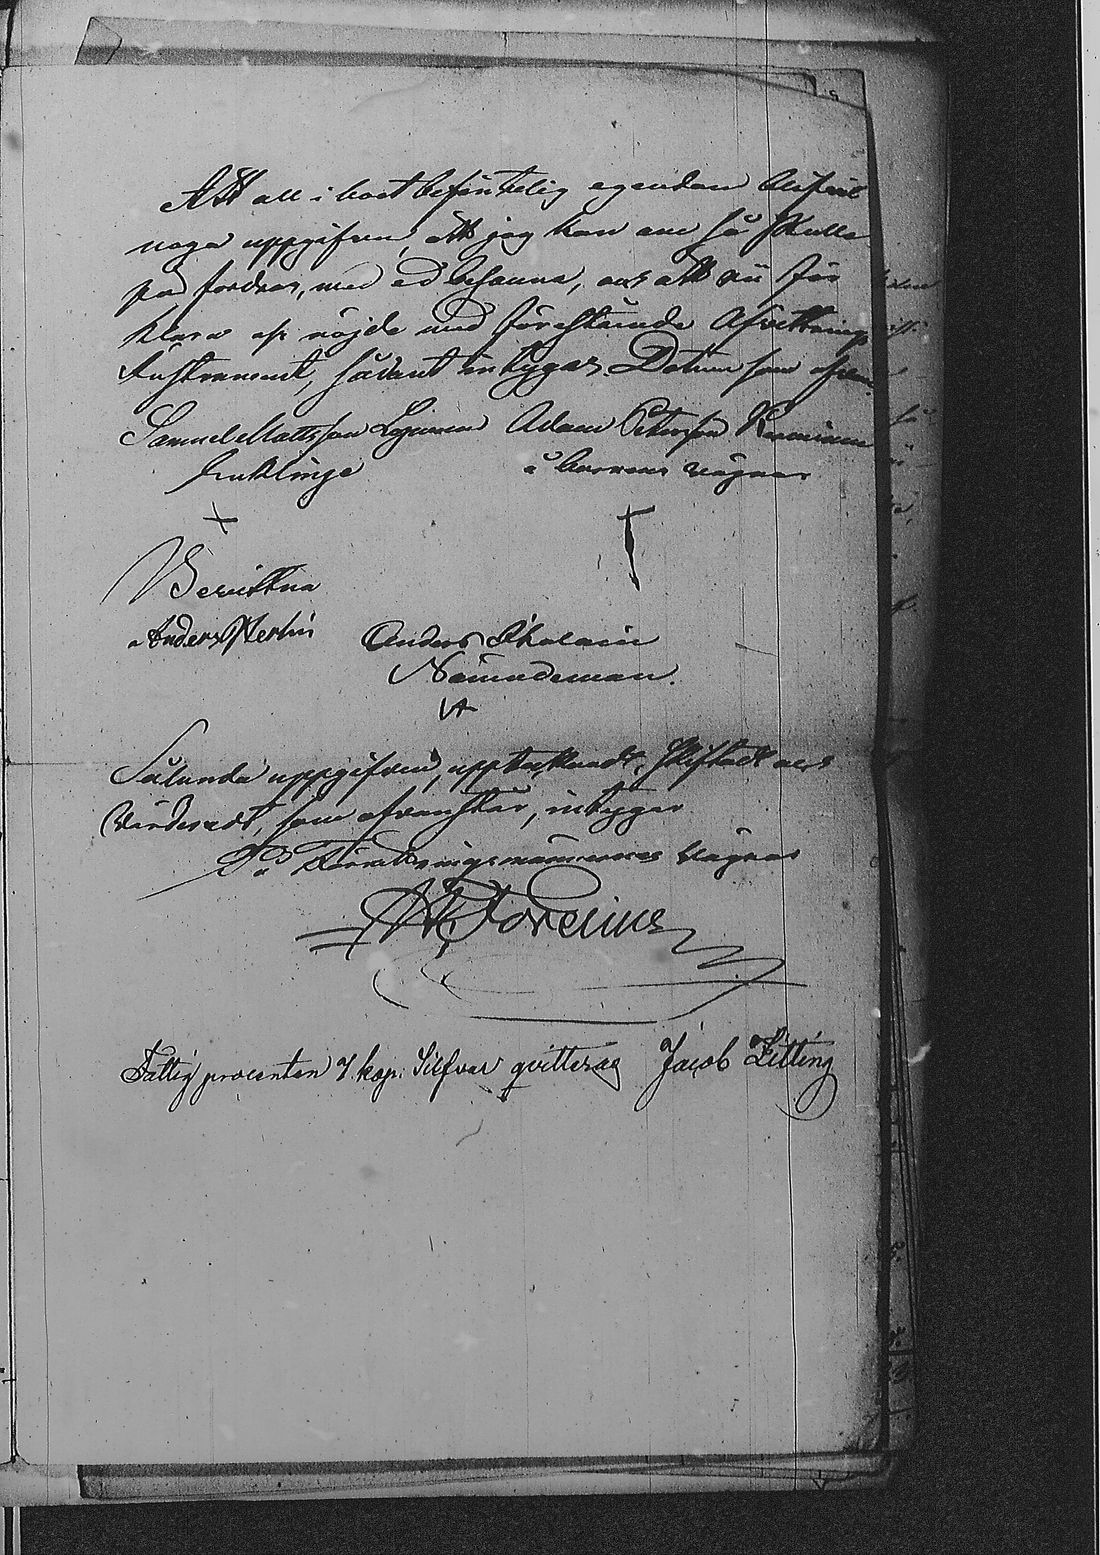 Att all i boet befintelig egendom blifvit
noga uppgifven, att jag kan om så skulle
på fordras, med ed besanna, och att vi för
klara oss nöjde med förestående Afvittrings
Instrument, sådant intygas. Datum som ofvan.
Samuel Mattsson Adam Petersson
Enklinge å barnens vägnar
Bevittna
Anders Anders
Nämndeman.
Sålunda uppgifvet, upptecknadt, skiftadt och
Värderadt, som ofvanstår, intyger
På Förrättningsmännernes Vägnar
Forelius
Fattig procenten 7. kop. Silfver qvitteras Jacob Zitting